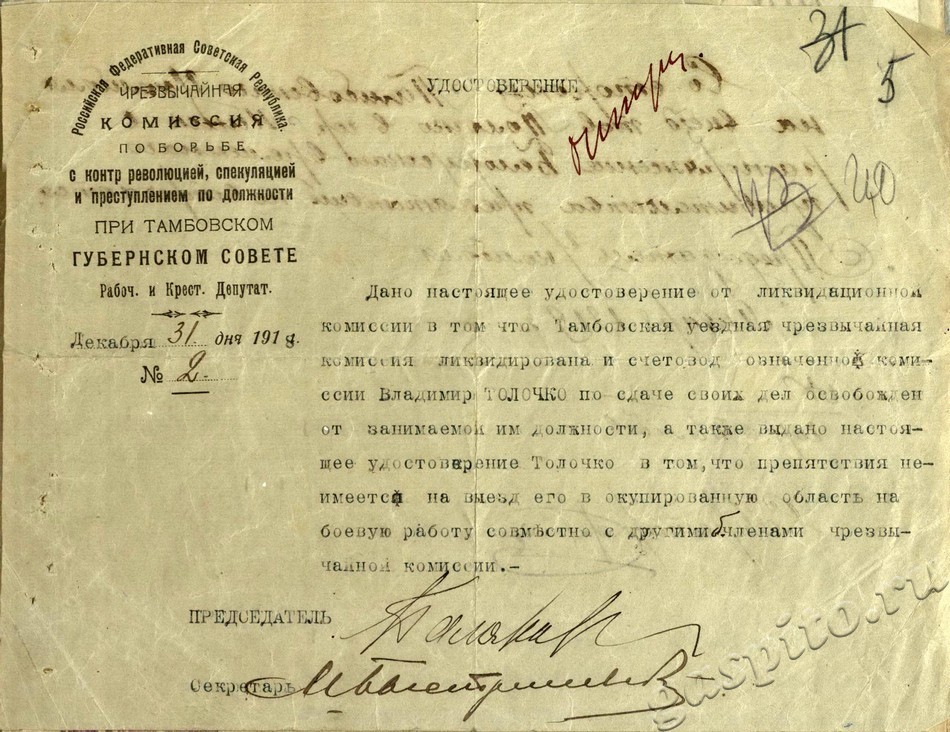 Российская Федеративная Советская Республика.
ЧРЕЗВЫЧАЙНАЯ
КОМИССИЯ
ПО БОРЬБЕ
с контр революцией, спекуляцией
и преступлением по должности
ПРИ ТАМБОВСКОМ
ГУБЕРНСКОМ СОВЕТЕ
Рабоч. и Крест. Депутат.
Декабря 31 дня 1918г.
№ 2.
31
5
40
УДОСТОВЕРЕНИЕ
Дано настоящее удостоверение от ликвидационной
комиссии в том что Тамбовская уездная чрезвычайная
комиссия ликвидирована и счетовод означенной коми-
ссии Владимир ТОЛОЧКО по сдаче своих дел освобожден
от занимаемой им должности, а также выдано настоя-
щее удостоверение Толочко в том,что препятствия не-
имеется на выезд его в окупированную область на
боевую работу совмѣстно с другими б.членами чрезвы-
чайной комиссии.-
ПРЕДСЕДАТЕЛЬ
Секретарь
gaspito.ru